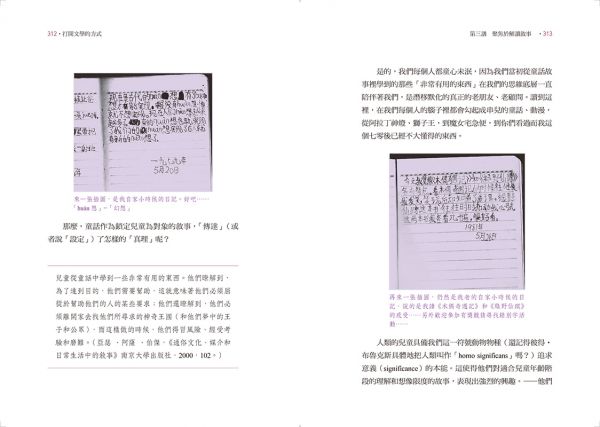 312 • 打開文學的方式
一九七九年
5月20日
來一張插圖，是我自家小時候的日記。好吧……
「huàn 想」=「幻想」
那麼，童話作為鎖定兒童為對象的敘事，「傳達」（或
者說「設定」）了怎樣的「真理」呢？
兒童從童話中學到一些非常有用的東西。他們瞭解到，
為了達到目的，他們需要幫助，這就意味著他們必須屈
從於幫助他們的人的某些要求；他們還瞭解到，他們必
須離開家去找他們所尋求的神奇王國（和他們夢中的王
子和公眾），而這樣做的時候，他們得冒風險、經受考
驗和磨難。（亞瑟．阿薩．伯傑，《通俗文化、媒介和
日常生活中的敘事》南京大學出版社，2000，102。）
第三講 聚焦於解讀敘事 • 313
是的，我們每個人都童心未泯，因為我們當初從童話故
事裡學到的那些「非常有用的東西」在我們的思維底層一直
陪伴著我們，是潛移默化的真正的老朋友、老顧問。讀到這
裡，在我們每個人的腦子裡都會勾起或串兒的童話、動漫，
從阿拉丁神燈、獅子王，到魔女宅急便，到你們看過而我這
個七零後已經不大懂得的東西。
1981年
5月26日
再來一張插圖，仍然是我老的自家小時候的日
記，說的是我讀《木偶奇遇記》和《綠野仙蹤》
的感受……另外歡迎參加有獎競猜尋找錯別字活
動……
人類的兒童具備我們這一符號動物物種（還記得彼得·
布魯克斯具體地把人類叫作「homo significans」嗎？）追求
意義（significance）的本能。這使得他們對適合兒童年齡階
段的理解和想像限度的故事，表現出強烈的興趣。——他們